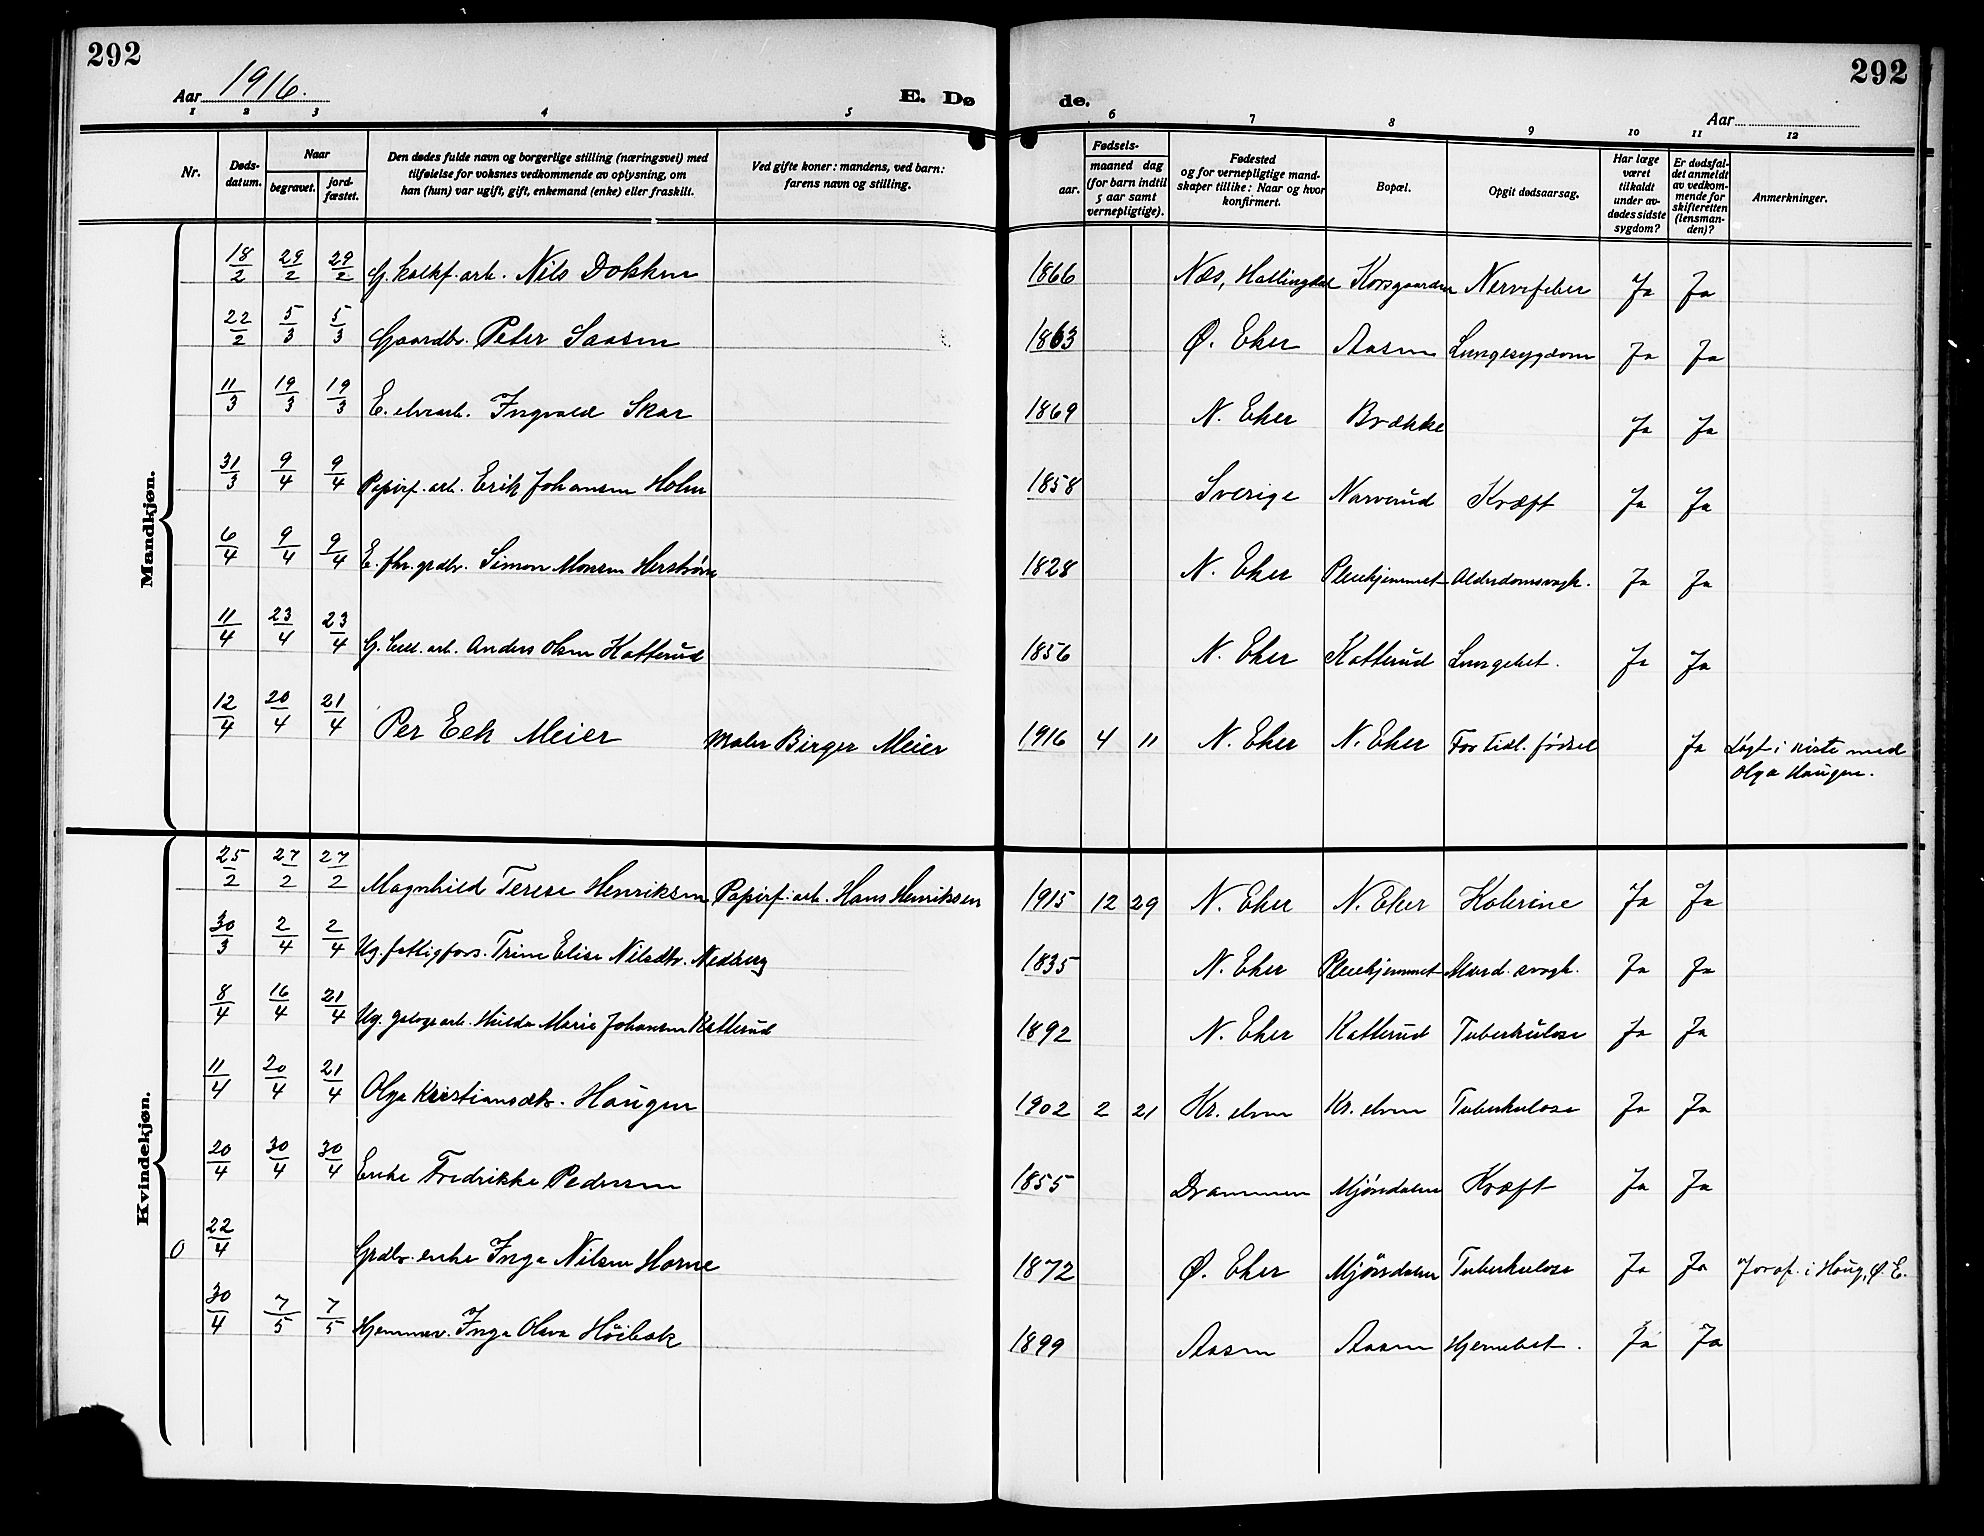 292
292
Aar 1916.
E. Dø
de.
Aar
1 2 3 4 5 6 7 8 9 10 11 12
Nr.
Døds-
datum.
Naar
begravet.
jord-
fæstet.
Den dødes fulde navn og borgerlige stilling (næringsvei) med
tilføielse for voksnes vedkommende av oplysning, om
han (hun) var ugift, gift, enkemand (enke) eller fraskilt.
Ved gifte koner: mandens, ved barn:
farens navn og stilling.
Fødsels-
aar.
maaned dag
(for barn indtil
5 aar samt
vernepligtige).
Fødested
og for vernepligtige mand-
skaper tillike: Naar og hvor
konfirmert.
Bopæl.
Opgit dødsaarsag.
Har læge
været
tilkaldt
under av-
dødes sidste
sygdom?
Er dødsfal-
det anmeldt
av vedkom-
mende for
skifteretten
(lensman-
den)?
Anmerkninger.
Mandkjøn.
18/2 29/2 29/2 G. kalkf. arb. Nils Dokken 1866 Næs, Hallingdal Korsgaarden Nervefeber Ja Ja
22/2 5/3 5/3 Gaardbr. Peter Saasen 1863 Ø. Eker Aasen Lungesygdom Ja Ja
11/3 19/3 19/3 E. elvearb. Ingvald Skar 1869 N. Eker Brække Ja Ja
31/3 9/4 9/4 Papirf. arb. Erik Johansen Holm 1858 Sverige Narverud Kræft Ja Ja
6/4 9/4 9/4 E. fhv. grdbr. Simon Monsen Herstrøm 1828 N. Eker Pleiehjemmet Alderdomsvagh. Ja Ja
11/4 23/4 23/4 G. Cell. arb. Anders Olsen Katterud 1856 N. Eker Katterud Lungebet. Ja Ja
12/4 20/4 21/4 Per Eek Meier Maler Birger Meier 1916 4 11 N. Eker N. Eker For tidl. fødsel Ja Lagt i kiste med
Olga Haugen.
Kvindekjøn.
25/2 27/2 27/2 Magnhild Terese Henriksen Papirf. arb. Hans Henriksen 1915 12 29 N. Eker N. Eker Kolerine Ja Ja
30/3 2/4 2/4 Ug. fattigfors. Trine Elise Nilsdtr. Nedberg 1835 N. Eker Pleiehjemmet Alderd. svagh. Ja Ja
8/4 16/4 21/4 Ug. galoge arb. Hulda Marie Johansen Katterud 1892 N. Eker Katterud Tuberkulose Ja Ja
11/4 20/4 21/4 Olga Kristiansdtr. Haugen 1902 2 21 Kr. elven Kr. elven Tuberkulose Ja Ja
20/4 30/4 30/4 Enke Fredrikke Pedersen 1855 Drammen Mjøndalen Kræft Ja Ja
0 22/4 Grdbr. enke Inga Nilsen Horne 1872 Ø. Eker Mjøndalen Tuberkulose Ja Ja Jordf. i Haug, Ø. E.
30/4 7/5 7/5 Hjemmev. Inga Olava Höibak 1899 Aasen Aasen Hjernebet. Ja Ja